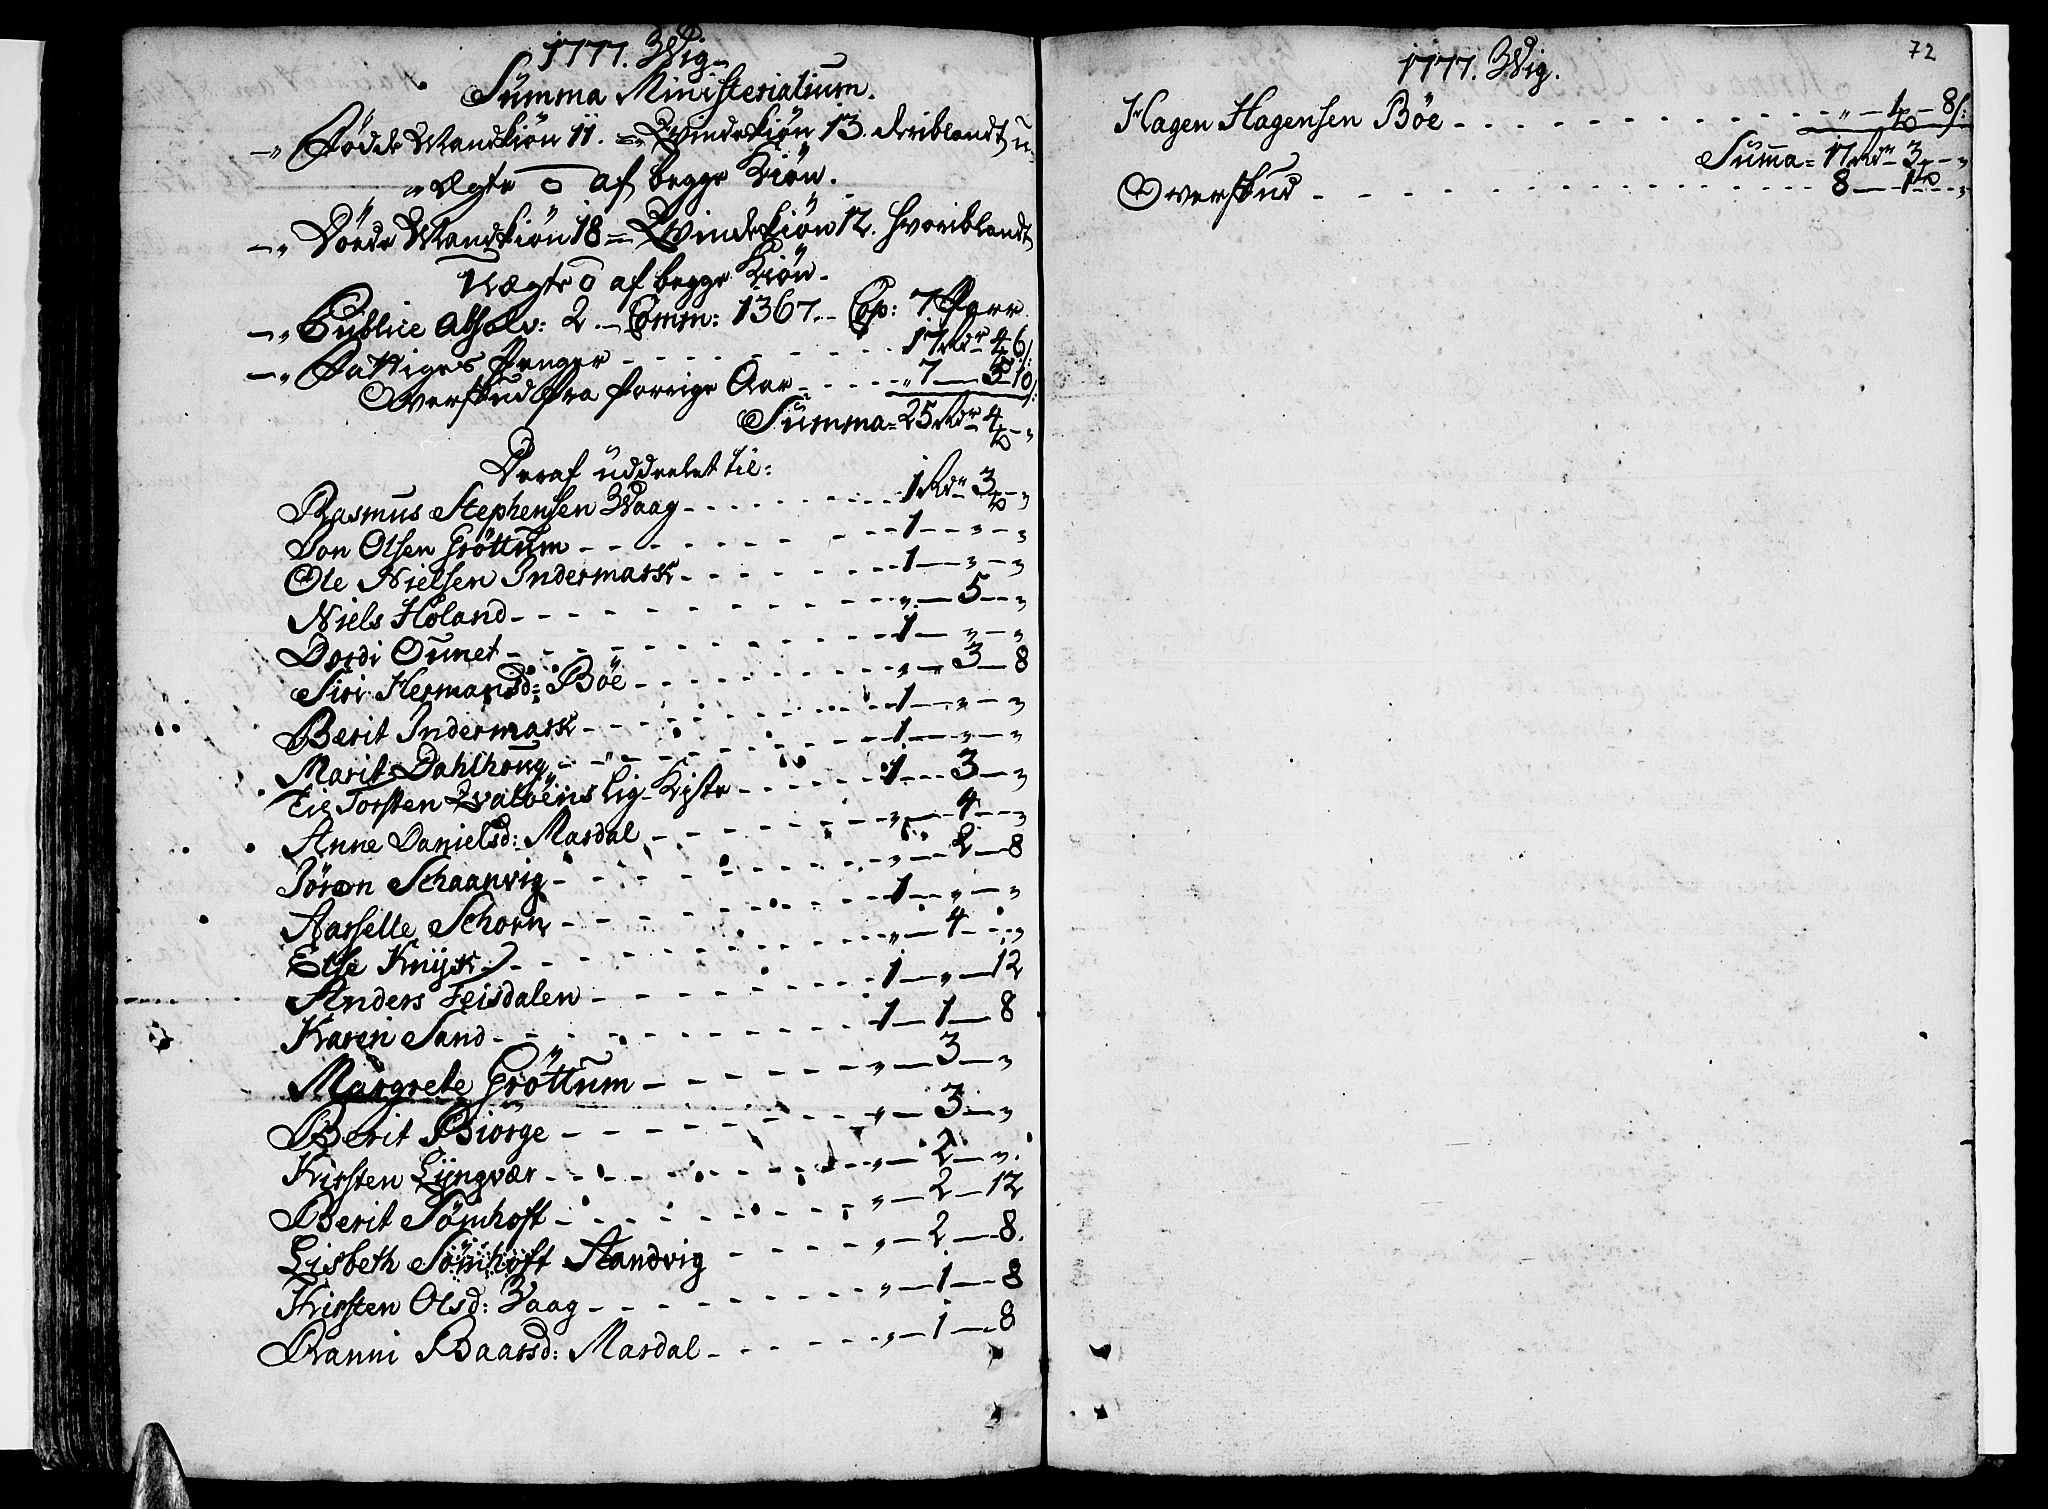 1777. Wig.
Summa Ministerialium.
-„ Födde Mandkiön 11. = Qvindekiön 13. deriblandt u-
„ægte 0 af begge Kiön.
-„ Döede Mandkiön 18 = Qvindekiön 12. hvoriblandt
Uægte 0 af begge Kiön.
-„ Publice Absolv: 2. - Comm: 1367. - Cop: 7 Parr
-„ Fattiges Penger - - - 17 Rdr 4 - 6 s:
Overskud fra forrige Aar - - - „ 7 - 5 - 10 s:
Summa = 25 Rdr 4 - „
Deraf uddeelet til:
Rasmus Stephensen Waag - - - 1 Rdr 3 - „
Jon Olsen Gröttum - - - 1 - „ - „
Ole Nielsen Indermark - - - 1 - „ - „
Niels Höland - - - „ - 5 - „
Dordi Ounet - - - 1 - „ - „
Siri Hermansd: Böe - - - „ - 3 - 8
Berit Indermark - - - 1 - „ - „
Marit Dahlhoug - - - 1 - „ - „
Til Torsten Qvalöens Lig-Kiste - - - 1 - 3 - „
Anne Danielsd: Mardal - - - „ - 4 - „
Jören Schaanvig - - - „ - 2 - 8
Aaselle Schorn - - - 1 - „ - „
Else Knÿsk - - - „ - 4 - „
Anders Teisdalen - - - 1 - „ - 12
Karen Sand - - - 1 - 1 - 8
Margrete Gröttum - - - „ - 3 - „
Berit Biörge - - - „ - 3 - „
Kirsten Lÿngvær - - - „ - 2 - „
Berit Sömhoft - - - „ - 2 - 12
Lisbeth Sömhoft Standvig - - - „ - 2 - 8.
Kirsten Olsd: Vaag - - - „ - 1 - 8
Ranni Baarsd: Mardal - - - „ - 1 - 8
72
1777. Wig.
Hagen Hagensen Böe - - - „ - 1 - 8 s:
Summa = 17 Rdr 3 - „
Overskud - - - 8 - 1 - „